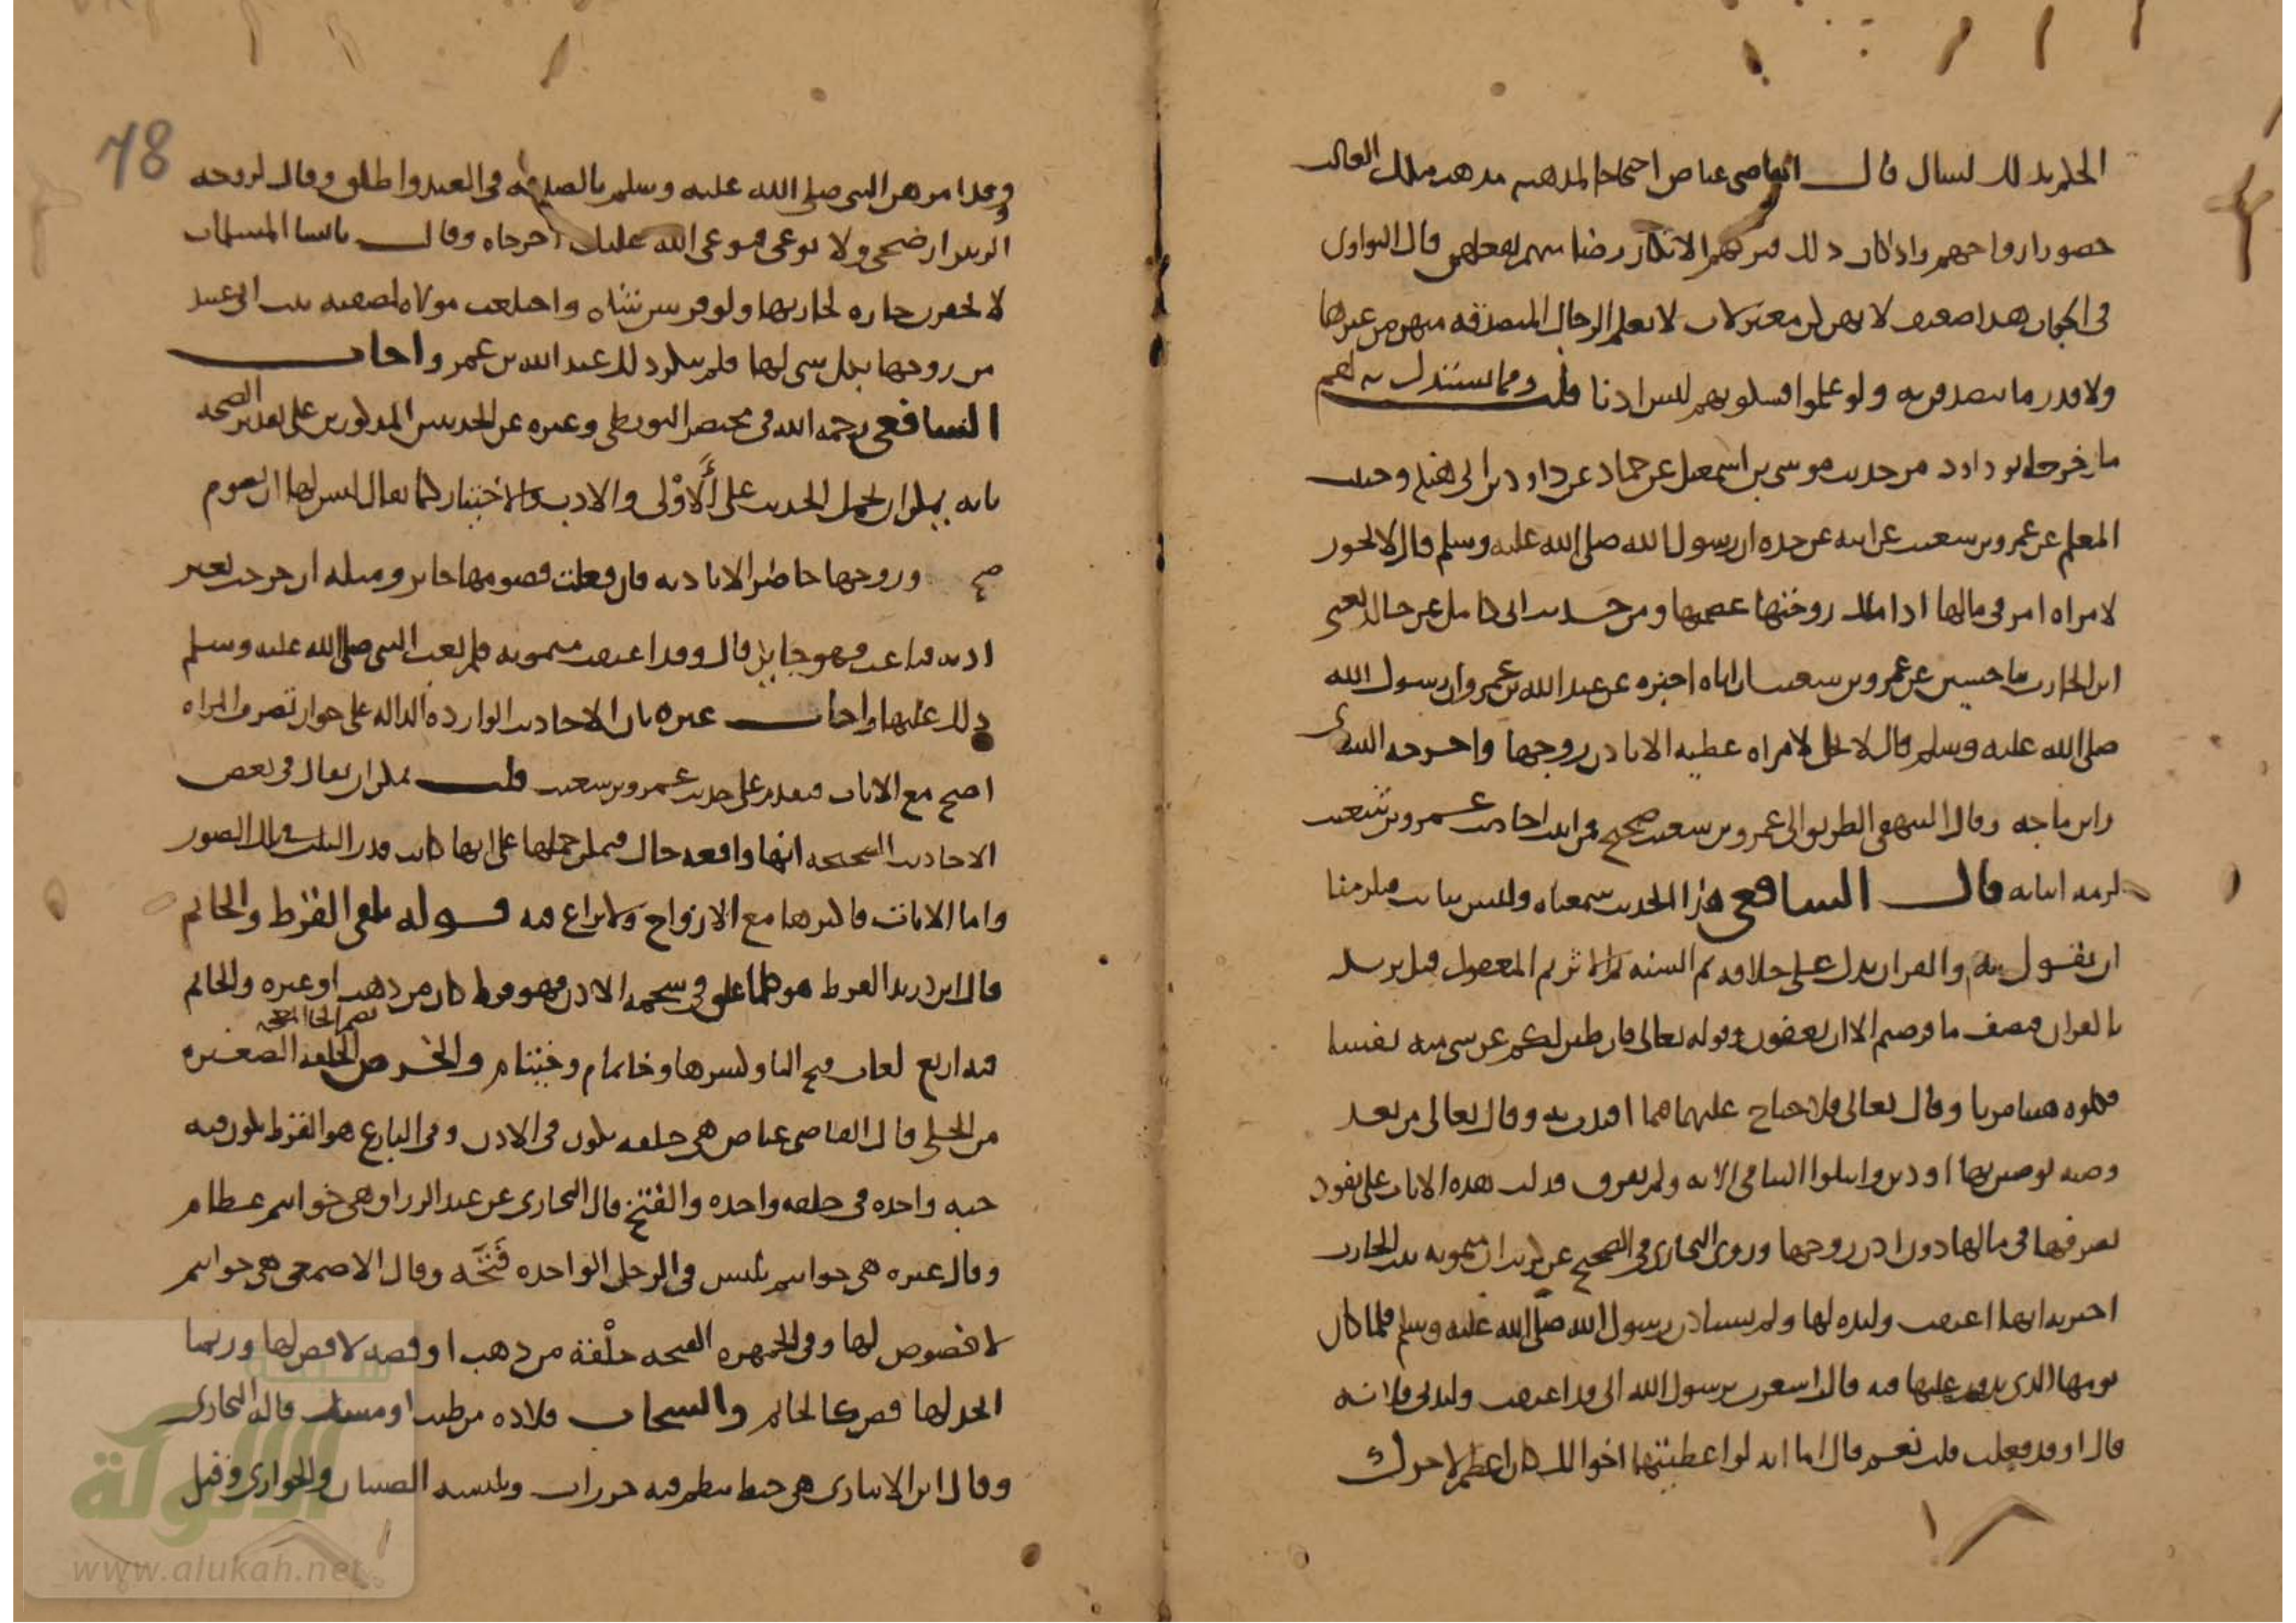 الحلم بذلك لسال قال القاضي عياض احتجاجا لمذهبه مذهب ملك الغالب
حضور ازواجهم واذا كان ذلك فتركهم الانكار رضا منهم بفعلهن قال النواوى
في الجواب هذا ضعيف لانهن كن معتزلات لا يعلم الرجال المتصدقه منهن من غيرها
ولا قدر ما يتصدقن به ولو علموا فسكوتهم ليس اذنا قلت ومما يستدل به لهم
ما خرجه ابو داود من حديث موسى بن اسمعيل عن حماد عن داود بن ابي هند وحبيب
المعلم عن عمرو بن شعيب عن ابيه عن جده ان رسول الله صلى الله عليه وسلم قال لا يجوز
لامراه امر في مالها اذا ملك زوجها عصمتها ومن حديث ابي كامل عن خالد يعني
ابن الحارث ما حسين عن عمرو بن شعيب ان اباه اخبره عن عبد الله بن عمرو ان رسول الله
صلى الله عليه وسلم قال لا يحل لامراه عطيه الا باذن زوجها واخرجه النساى
وابن ماجه وقال البيهقي الطريق الى عمرو بن شعيب صحيح فمن اثبت احاديث عمرو بن شعيب
لزمه اثباته قال الشافعي هذا الحديث سمعناه وليس بثابت فيلزمنا
ان نقول به والقران يدل على خلافه ثم السنه ثم الاثر ثم المعقول قيل يريد
بالقران فنصف ما فرضتم الا ان يعفون وقوله تعالى فان طبن لكم عن شي منه نفسا
فكلوه هنيا مريا وقال تعالى فلا جناح عليهما فيما افتدت به وقال تعالى من بعد
وصيه توصين بها او دين وابتلوا اليتامى الايه ولم يفرق فدلت هذه الايات على نفود
تصرفها في مالها دون اذن زوجها وروى البخاري في الصحيح عن كريب ان ميمونه بنت الحارث
اخبرته انها اعتقت وليده لها ولم تستاذن رسول الله صلى الله عليه وسلم فلما كان
يومها الذي يدور عليها فيه قالت اشعرت يرسول الله اني قد اعتقت وليدتي فلانه
قال او قد فعلت قلت نعم قال اما انك لو اعطيتها اخوالك كان اعظم لاجرك
78
وقد امرهن النبي صلى الله عليه وسلم بالصدقه في العيد واطلق وقال لزوجه
الزبير ارضخي ولا توعي فيوعي الله عليك اخرجاه وقال يا نسا المسلمات
لا تحقرن جاره لجارتها ولو فرسن شاه واختلعت مولاه لصفيه بنت ابي عبيد
من زوجها بكل شي لها فلم ينكر ذلك عبد الله بن عمر واجاب
الشافعي رحمه الله في مختصر البويطي وغيره عن الحديثين المذكورين على تقدير الصحه
بانه يمكن ان يحمل الحديث على الأَوْلى والادب والاختيار كما يقال ليس لها ان تصوم
صح وزوجها حاضر الا باذنه فان فعلت فصومها جايز ومثله ان خرجت بغير
اذنه فباعت فهو جايز قال وقد اعتقت ميمونه فلم يعب النبي صلى الله عليه وسلم
ذلك عليها واجاب غيره بان الاحاديث الوارده الداله على جواز تصرف المراه
اصح مع الايات فتقدم على حديث عمرو بن شعيب قلت يمكن ان يقال في بعض
الاحاديث الصحيحه انها واقعه حال فيمكن حملها على انها كانت قدر الثلث في تلك الصور
واما الايات فاكثرها مع الازواج ولا نزاع فيه قوله تلقي القرط والخاتم
قال ابن دريد القرط هو كلما علق في شحمه الاذن فهو قرط كان من ذهب او غيره والخاتم
فيه اربع لغات فتح التا وكسرها وخاتام وخيتام والخرص بضم الخا المعجمه الحلقه الصغيره
من الحلي قال القاضي عياض هي حلقه تكون في الاذن وفي البارع هو القرط يكون فيه
حبه واحده في حلقه واحده والفتخ قال البخاري عن عبد الرزاق هي خواتيم عظام
وقال غيره هي خواتيم تلبس في الرجل الواحده فَتَخَه وقال الاصمعي هي خواتيم
لا فصوص لها وفي الجمهره الفتخه حلْقة من ذهب او فضه لا فص لها وربما
اتخذ لها فص كالخاتم والسخاب قلاده من طيب او مسك قاله البخارى
وقال ابن الانبارى هي خيط ينظم فيه خرزات ويلبسه الصبيان والجوارى وقيل
شبكة
الألوكة
www.alukah.net